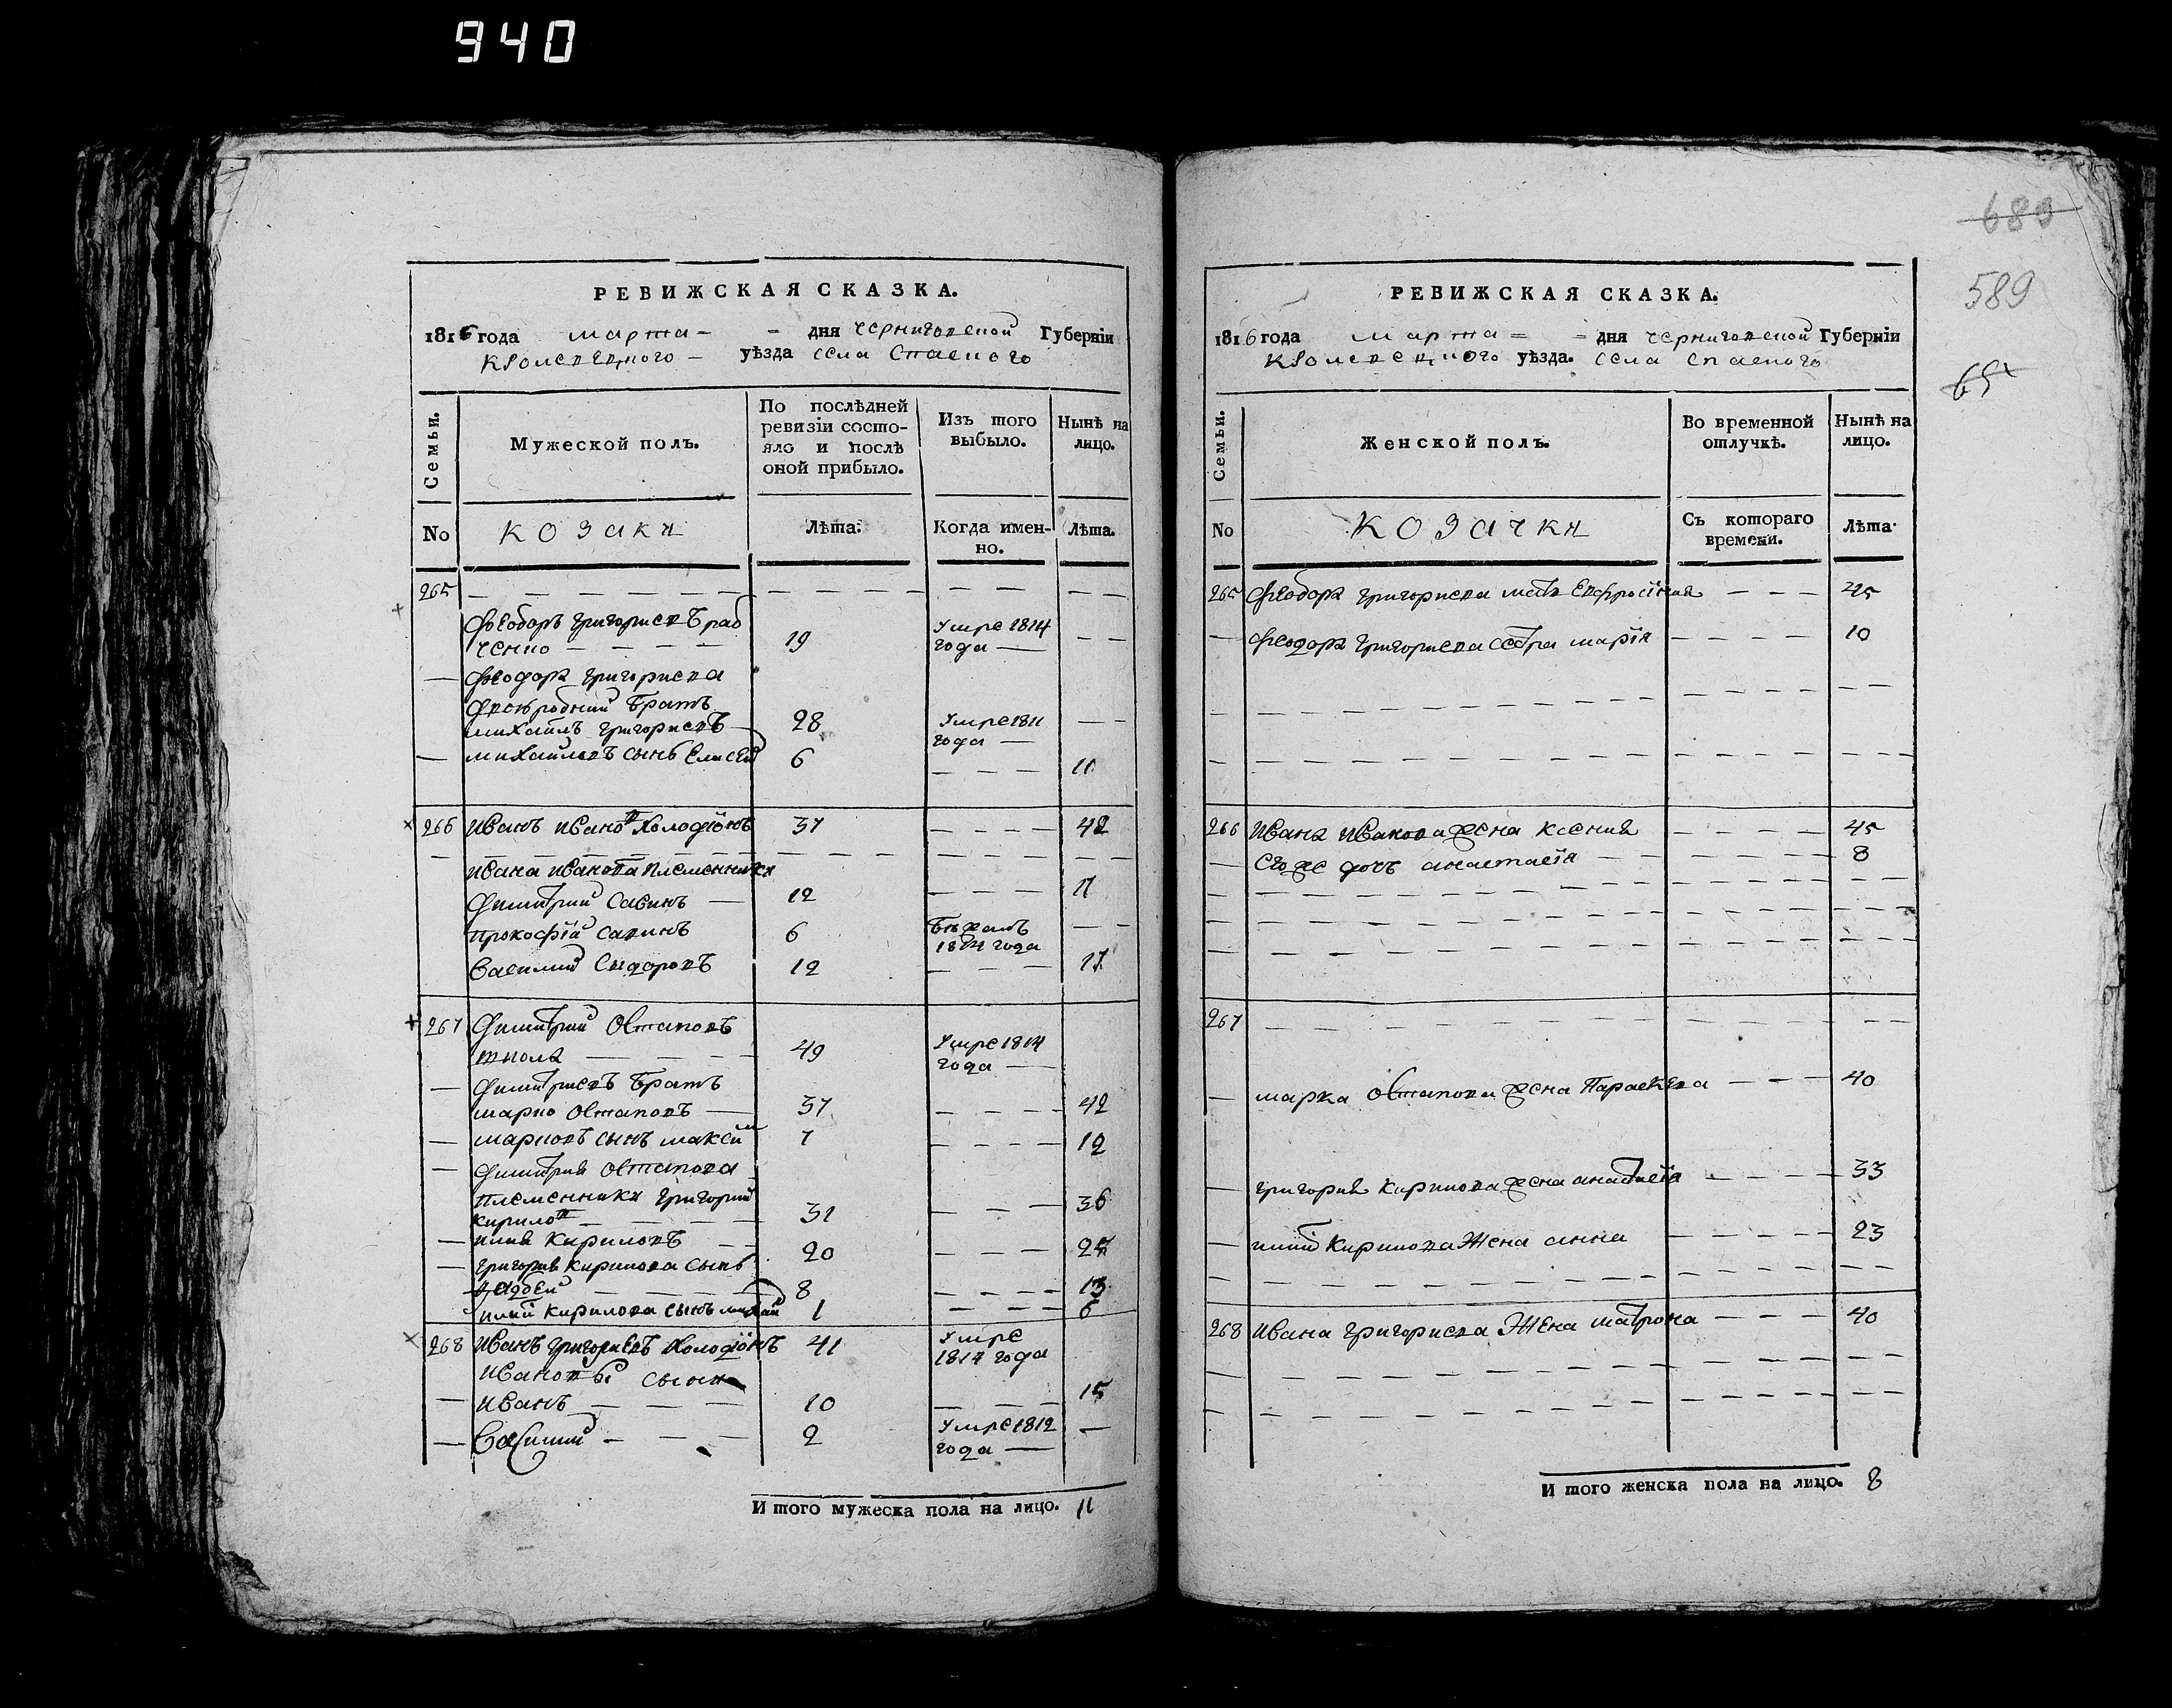 940
РЕВИЖСКАЯ СКАЗКА.
1816 года марта — – дня черниговской Губернiи
кролевецкого — уѣзда села Спаского
Семьи.
Мужеской полъ.
По послѣдней ревизiи состояло и послѣ оной прибыло.
Изъ того выбыло.
Нынѣ на лицо.
No
козаки
Лѣта.
Когда именно.
Лѣта.
265
Феодоръ григориевъ рад
ченко 19 Умре 1814 года
Феодора григориева
двоюродний братъ
михаилъ григориевъ 28 Умре 1811 года
михаиловъ сынъ Елисей 6 11
266 Иванъ ивановъ Холодионъ 37 42
ивана иванова племенники
Димитрий Савинъ 12 17
прокофiй савинъ 6 Бежалъ 1814 года
Василий Сидоровъ 12 17
267 Димитрий Остаповъ
49 Умре 1814 года
Димитриевъ братъ
марко Остаповъ 37 42
марковъ сынъ максим 7 12
Димитрия Остапова
племенники григорий
кирилов 31 36
илия Кириловъ 20 25
григория кирилова сынъ
Фадей 8 13
илии кирилова сынъ михаи 1 6
268 Иванъ григориевъ Холодiонъ 41 Умре 1814 года
Ивановы сыни
иванъ 10 15
Василий 2 Умре 1812 года
И того мужеска пола на лицо. 11
680
589
65
РЕВИЖСКАЯ СКАЗКА.
1816 года марта — – дня черниговской Губернiи
кролевецкого уѣзда. села спаского
Семьи.
Женской полъ.
Во временной отлучкѣ.
Нынѣ на лицо.
No
козачки
Съ котораго времени.
Лѣта.
265 Феодора григориева мать Евфросiния 45
Феодора григориева сестра марiя 10
266 Ивана Иванова жена ксения 45
Его же дочь анастасiя 8
267
марка Остапова жена Параскева 40
григория кирилова жена анастасiя 33
илии Кирилова Жена анна 23
268 Ивана григориева Жена матрона 40
И того женска пола на лицо. 8